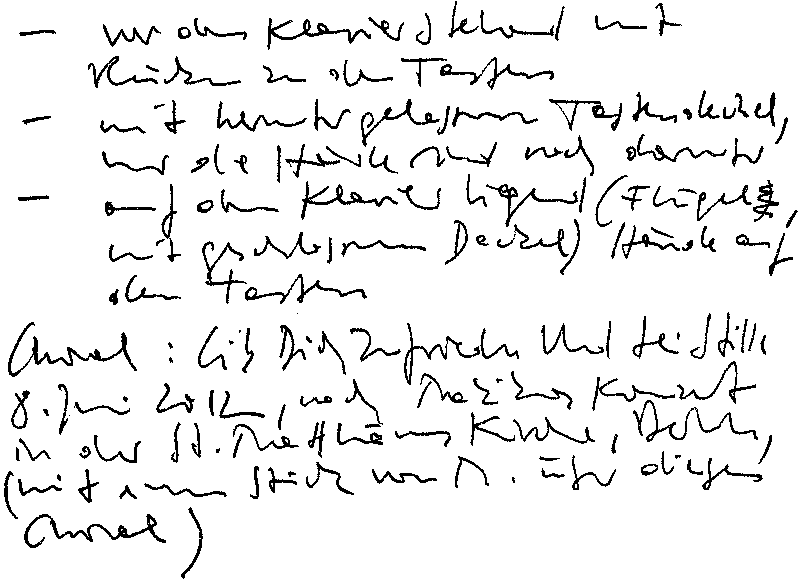 — vor dem Klavier stehend mit
Rücken zu den Tasten
— mit heruntergelassenem Tastendeckel,
nur die Hände sind noch darunter
— auf dem Klavier liegend (Flügel,
mit geschlossenem Deckel) Hände auf
den Tasten
Choral: Gib Dich zufrieden und sei stille
8. Juni 2012, nach Konzert
in der St. Matthäus Kirche, Berlin,
(mit einem Stück von M. über diesen
Choral)